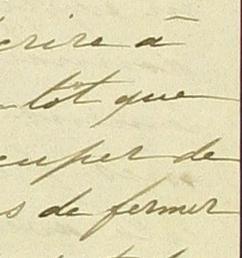 crire à
tôt que
cuper de
s de fermer